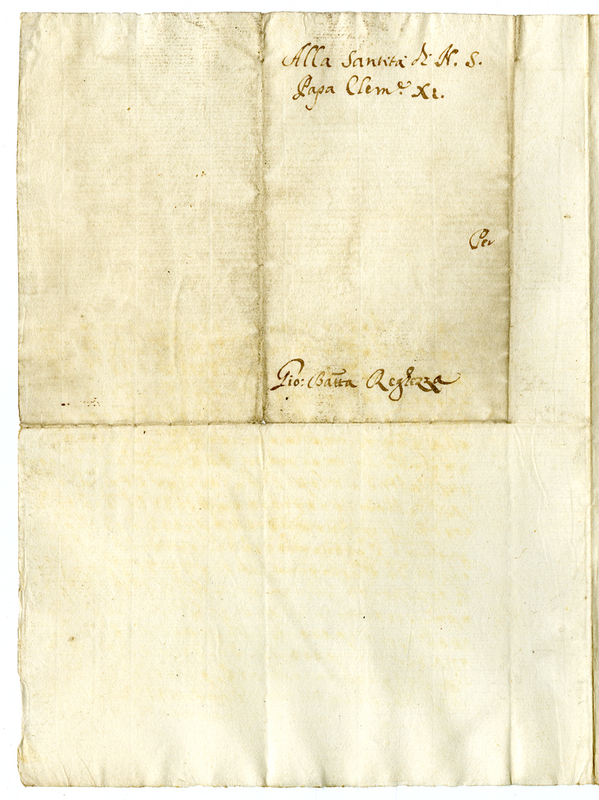 Alla Santità di N. S.
Papa Clem.e XI.
Per
Gio: Batta Reghezza